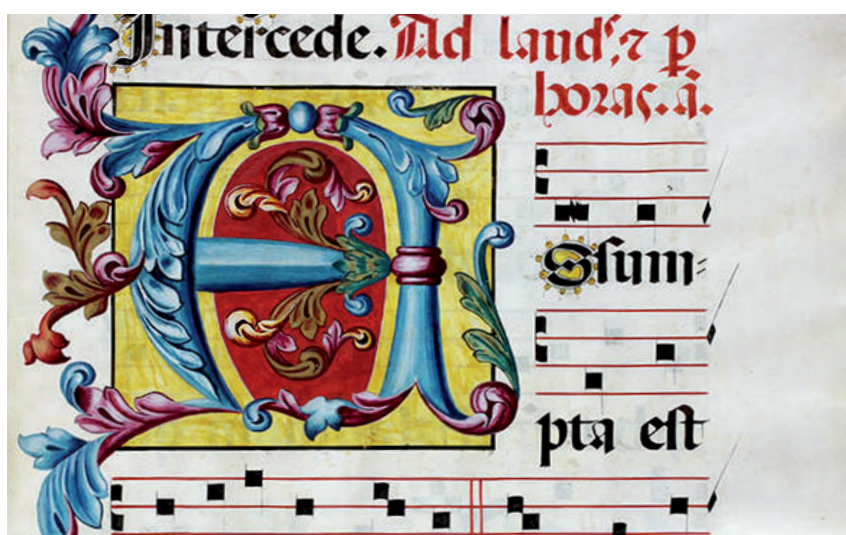 Intercede. Ad laud⁹, ⁊ ꝑ
horas. ā.
A
Ssum⹀
pta est